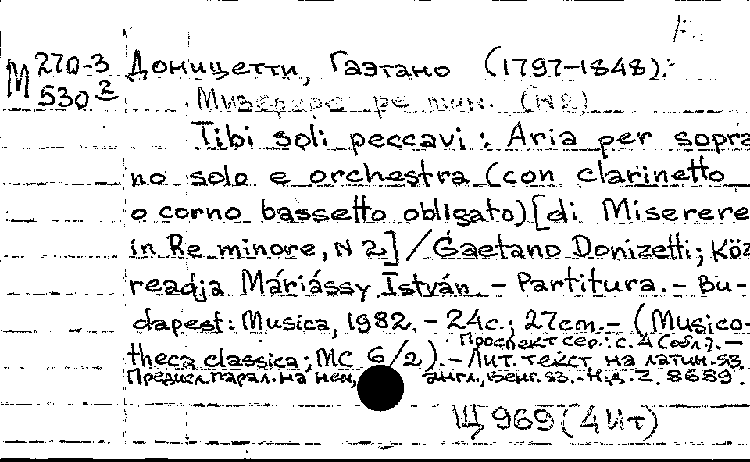 М 270-3 Доницетти, Гаэтано (1797-1848).
530 2
Мизерере ре мин. (N2)
Tibi soli peccavi : Aria per sopra
no solo e orchestra (con clarinetto
o corno bassetto obligato) [di Miserere
in Re minore, N 2] / Gaetano Donizetti; Köz
readja Máriássy István. - Partitura. - Bu-
dapest: Musica, 1982. - 24c.; 27cm. - (Musico-
theca classica; MC 6/2). - Проспект сер.: с. 4 (обл.). -
Лит. текст на латин. яз.
Предисл. парал. на нем., англ., венг. яз. - Н.д. Z. 8689.
Щ 969 (4Ит)